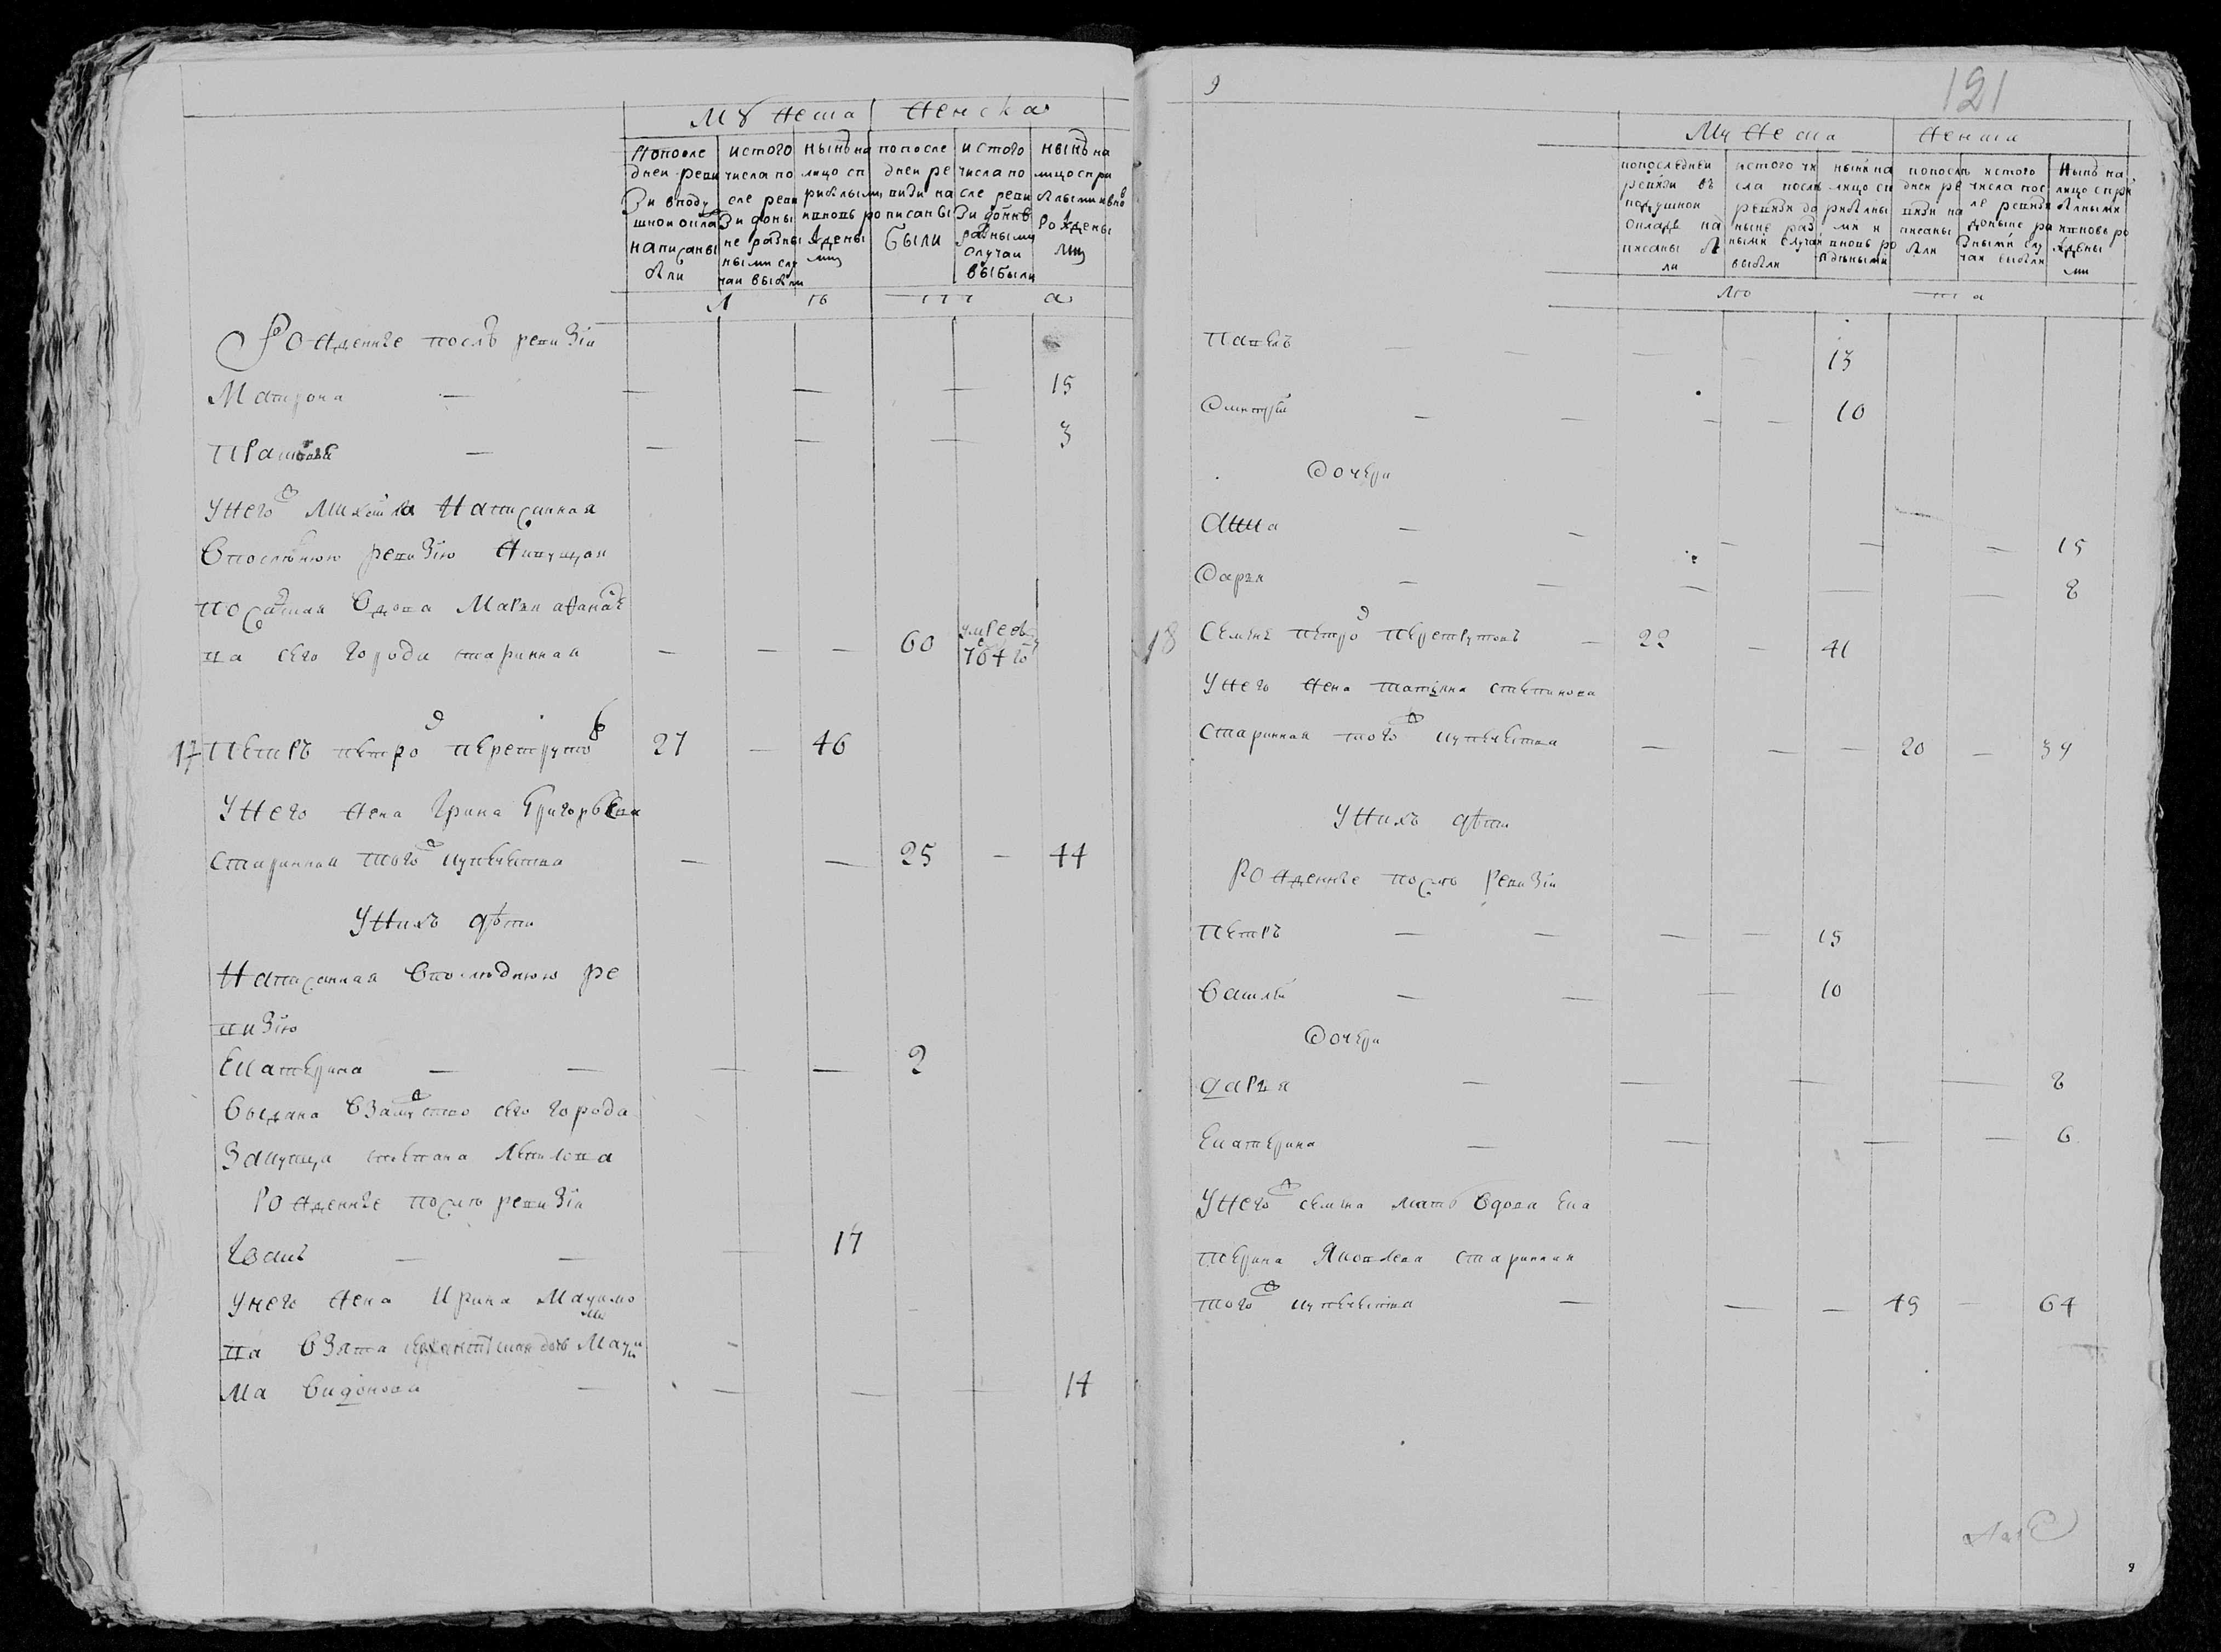 Мужеска Женска
Попосле дней реви зи вподу шной окла написаны были
истого числа по сле реви зи доны не разны ными слу чаи выбыли
нынѣ на лицо сп рибылыми ивновь ро ждены ми
попосле дней ре визи на писаны были
истого числа по сле реви зи донне разными случаи выбыли
нынѣ на лицо спри былыми ивно рождены ми
л ѣ т а
Рожденные послѣ ревизіи
Матрона — — — — 15
Прасковья — — — — 3
Унего Михайла Написанная
Впослѣднюю ревизию Живущая
вдова Марья Афанасье
ва сего города старинная — — — 60 умре в 764 го
17 Петръ петро перетрутов 27 — 46
Унего жена Ирина Григорьева
Старинная того купечества — — 25 — 44
Унихъ дѣти
Написанная Впоследнюю ре
визию
Екатерина — — — — 2
Выдана Взамуство сего города
Закупца степана
Рожденные послѣ ревизіи
Иванъ — — — 17
Унего жена Ирина Макимо
ва Взята дочь Макси
ма — — — — 14
9
121
Мужеска Женска
попоследнеи ревизи въ подушнои окладъ на писаны бы ли
истого чи сла послѣ ревизи до ныне раз ными случаи выбыли
нынѣ на лицо сп рибылы ми и вновь ро жденными
попослѣ дней ре визи на писаны были
истого числа пос ле ревизи доныне ра зными слу чаи выбыли
Нынѣ на лицо спри былыми ивновь ро ждены ми
лѣ та
Павелъ — — — — 13
Дмитрей — — — — 10
Дочери
Анна — — — — — 15
Дарья — — — — — 8
18 Семенъ петро перетрутовъ — 22 — 41
Унего жена татьяна степанова
Старинная того купечества — — — 20 — 39
Унихъ дѣти
Рожденные послѣ Ревизіи
Петръ — — — — 15
Василей — — — 10
Дочери
дарья — — — — 8
Екатерина — — — — 6
Унего семена мать Вдова Ека
терина Яковлева старинная
того купечества — — — 45 — 64